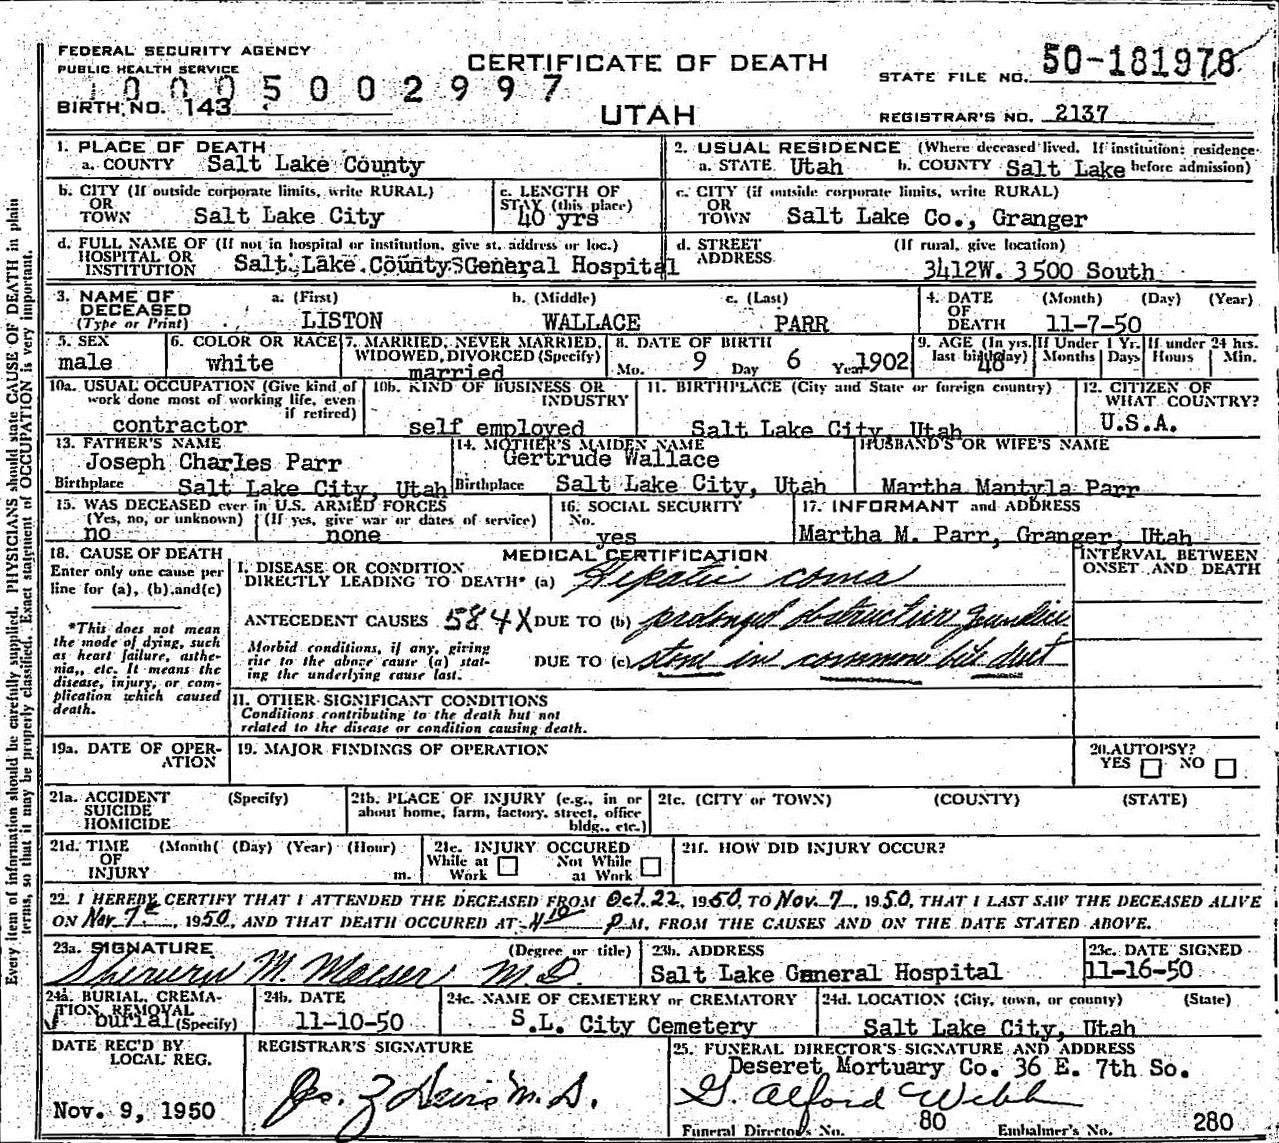 FEDERAL SECURITY AGENCY
PUBLIC HEALTH SERVICE
CERTIFICATE OF DEATH
STATE FILE NO. 50-181978
1 0 0 0 5 0 0 2 9 9 7
BIRTH NO. 143
UTAH
REGISTRAR'S NO. 2137
1. PLACE OF DEATH
a. COUNTY Salt Lake County
2. USUAL RESIDENCE (Where deceased lived. If institution: residence
a. STATE Utah b. COUNTY Salt Lake before admission)
b. CITY (If outside corporate limits, write RURAL)
OR
TOWN Salt Lake City
c. LENGTH OF
STAY (this place)
40 yrs
c. CITY (if outside corporate limits, write RURAL)
OR
TOWN Salt Lake Co., Granger
d. FULL NAME OF (If not in hospital or institution, give st. address or loc.)
HOSPITAL OR
INSTITUTION Salt Lake County General Hospital
d. STREET (If rural, give location)
ADDRESS
3412W. 3500 South
3. NAME OF a. (First) b. (Middle) c. (Last)
DECEASED
(Type or Print) LISTON WALLACE PARR
4. DATE (Month) (Day) (Year)
OF
DEATH 11-7-50
5. SEX
male
6. COLOR OR RACE
white
7. MARRIED, NEVER MARRIED,
WIDOWED, DIVORCED (Specify)
married
8. DATE OF BIRTH
Mo. 9 Day 6 Year 1902
9. AGE (In yrs.
last birthday)
48
If Under 1 Yr.
Months Days
If under 24 hrs.
Hours Min.
10a. USUAL OCCUPATION (Give kind of
work done most of working life, even
if retired)
contractor
10b. KIND OF BUSINESS OR
INDUSTRY
self employed
11. BIRTHPLACE (City and State or foreign country)
Salt Lake City, Utah
12. CITIZEN OF
WHAT COUNTRY?
U.S.A.
13. FATHER'S NAME
Joseph Charles Parr
Birthplace Salt Lake City, Utah
14. MOTHER'S MAIDEN NAME
Gertrude Wallace
Birthplace Salt Lake City, Utah
HUSBAND'S OR WIFE'S NAME
Martha Mantyla Parr
15. WAS DECEASED ever in U.S. ARMED FORCES
(Yes, no, or unknown) (If yes, give war or dates of service)
no none
16. SOCIAL SECURITY
No.
yes
17. INFORMANT and ADDRESS
Martha M. Parr, Granger, Utah
18. CAUSE OF DEATH
Enter only one cause per
line for (a), (b), and (c)
*This does not mean
the mode of dying, such
as heart failure, asthe-
nia,, etc. It means the
disease, injury, or com-
plication which caused
death.
MEDICAL CERTIFICATION
I. DISEASE OR CONDITION
DIRECTLY LEADING TO DEATH* (a) Hepatic coma
ANTECEDENT CAUSES 584X DUE TO (b) prolonged obstructive jaundice
Morbid conditions, if any, giving
rise to the above cause (a) stat-
ing the underlying cause last.
DUE TO (c) stone in common bile duct
INTERVAL BETWEEN
ONSET AND DEATH
11. OTHER SIGNIFICANT CONDITIONS
Conditions contributing to the death but not
related to the disease or condition causing death.
19a. DATE OF OPER-
ATION
19. MAJOR FINDINGS OF OPERATION
20. AUTOPSY?
YES NO
21a. ACCIDENT (Specify)
SUICIDE
HOMICIDE
21b. PLACE OF INJURY (e.g., in or
about home, farm, factory, street, office
bldg., etc.)
21c. (CITY or TOWN) (COUNTY) (STATE)
21d. TIME (Month( (Day) (Year) (Hour)
OF
INJURY m.
21e. INJURY OCCURED
While at Not While
Work at Work
21f. HOW DID INJURY OCCUR?
22. I HEREBY CERTIFY THAT I ATTENDED THE DECEASED FROM Oct. 22, 1950, TO Nov. 7, 1950, THAT I LAST SAW THE DECEASED ALIVE
ON Nov 7th, 1950, AND THAT DEATH OCCURED AT 4 10 P.M. FROM THE CAUSES AND ON THE DATE STATED ABOVE.
23a. SIGNATURE (Degree or title)
M. M.D.
23b. ADDRESS
Salt Lake General Hospital
23c. DATE SIGNED
11-16-50
24a. BURIAL, CREMA-
TION REMOVAL
burial (Specify)
24b. DATE
11-10-50
24c. NAME OF CEMETERY or CREMATORY
S.L. City Cemetery
24d. LOCATION (City, town, or county) (State)
Salt Lake City, Utah
DATE REC'D BY
LOCAL REG.
Nov. 9, 1950
REGISTRAR'S SIGNATURE
M.D.
25. FUNERAL DIRECTOR'S SIGNATURE AND ADDRESS
Deseret Mortuary Co. 36 E. 7th So.
G. Alford Webb
Funeral Director's No. 80 Embalmer's No. 280
Every item of information should be carefully supplied. PHYSICIANS should state CAUSE OF DEATH in plain
terms, so that it may be properly classified. Exact statement of OCCUPATION is very important.